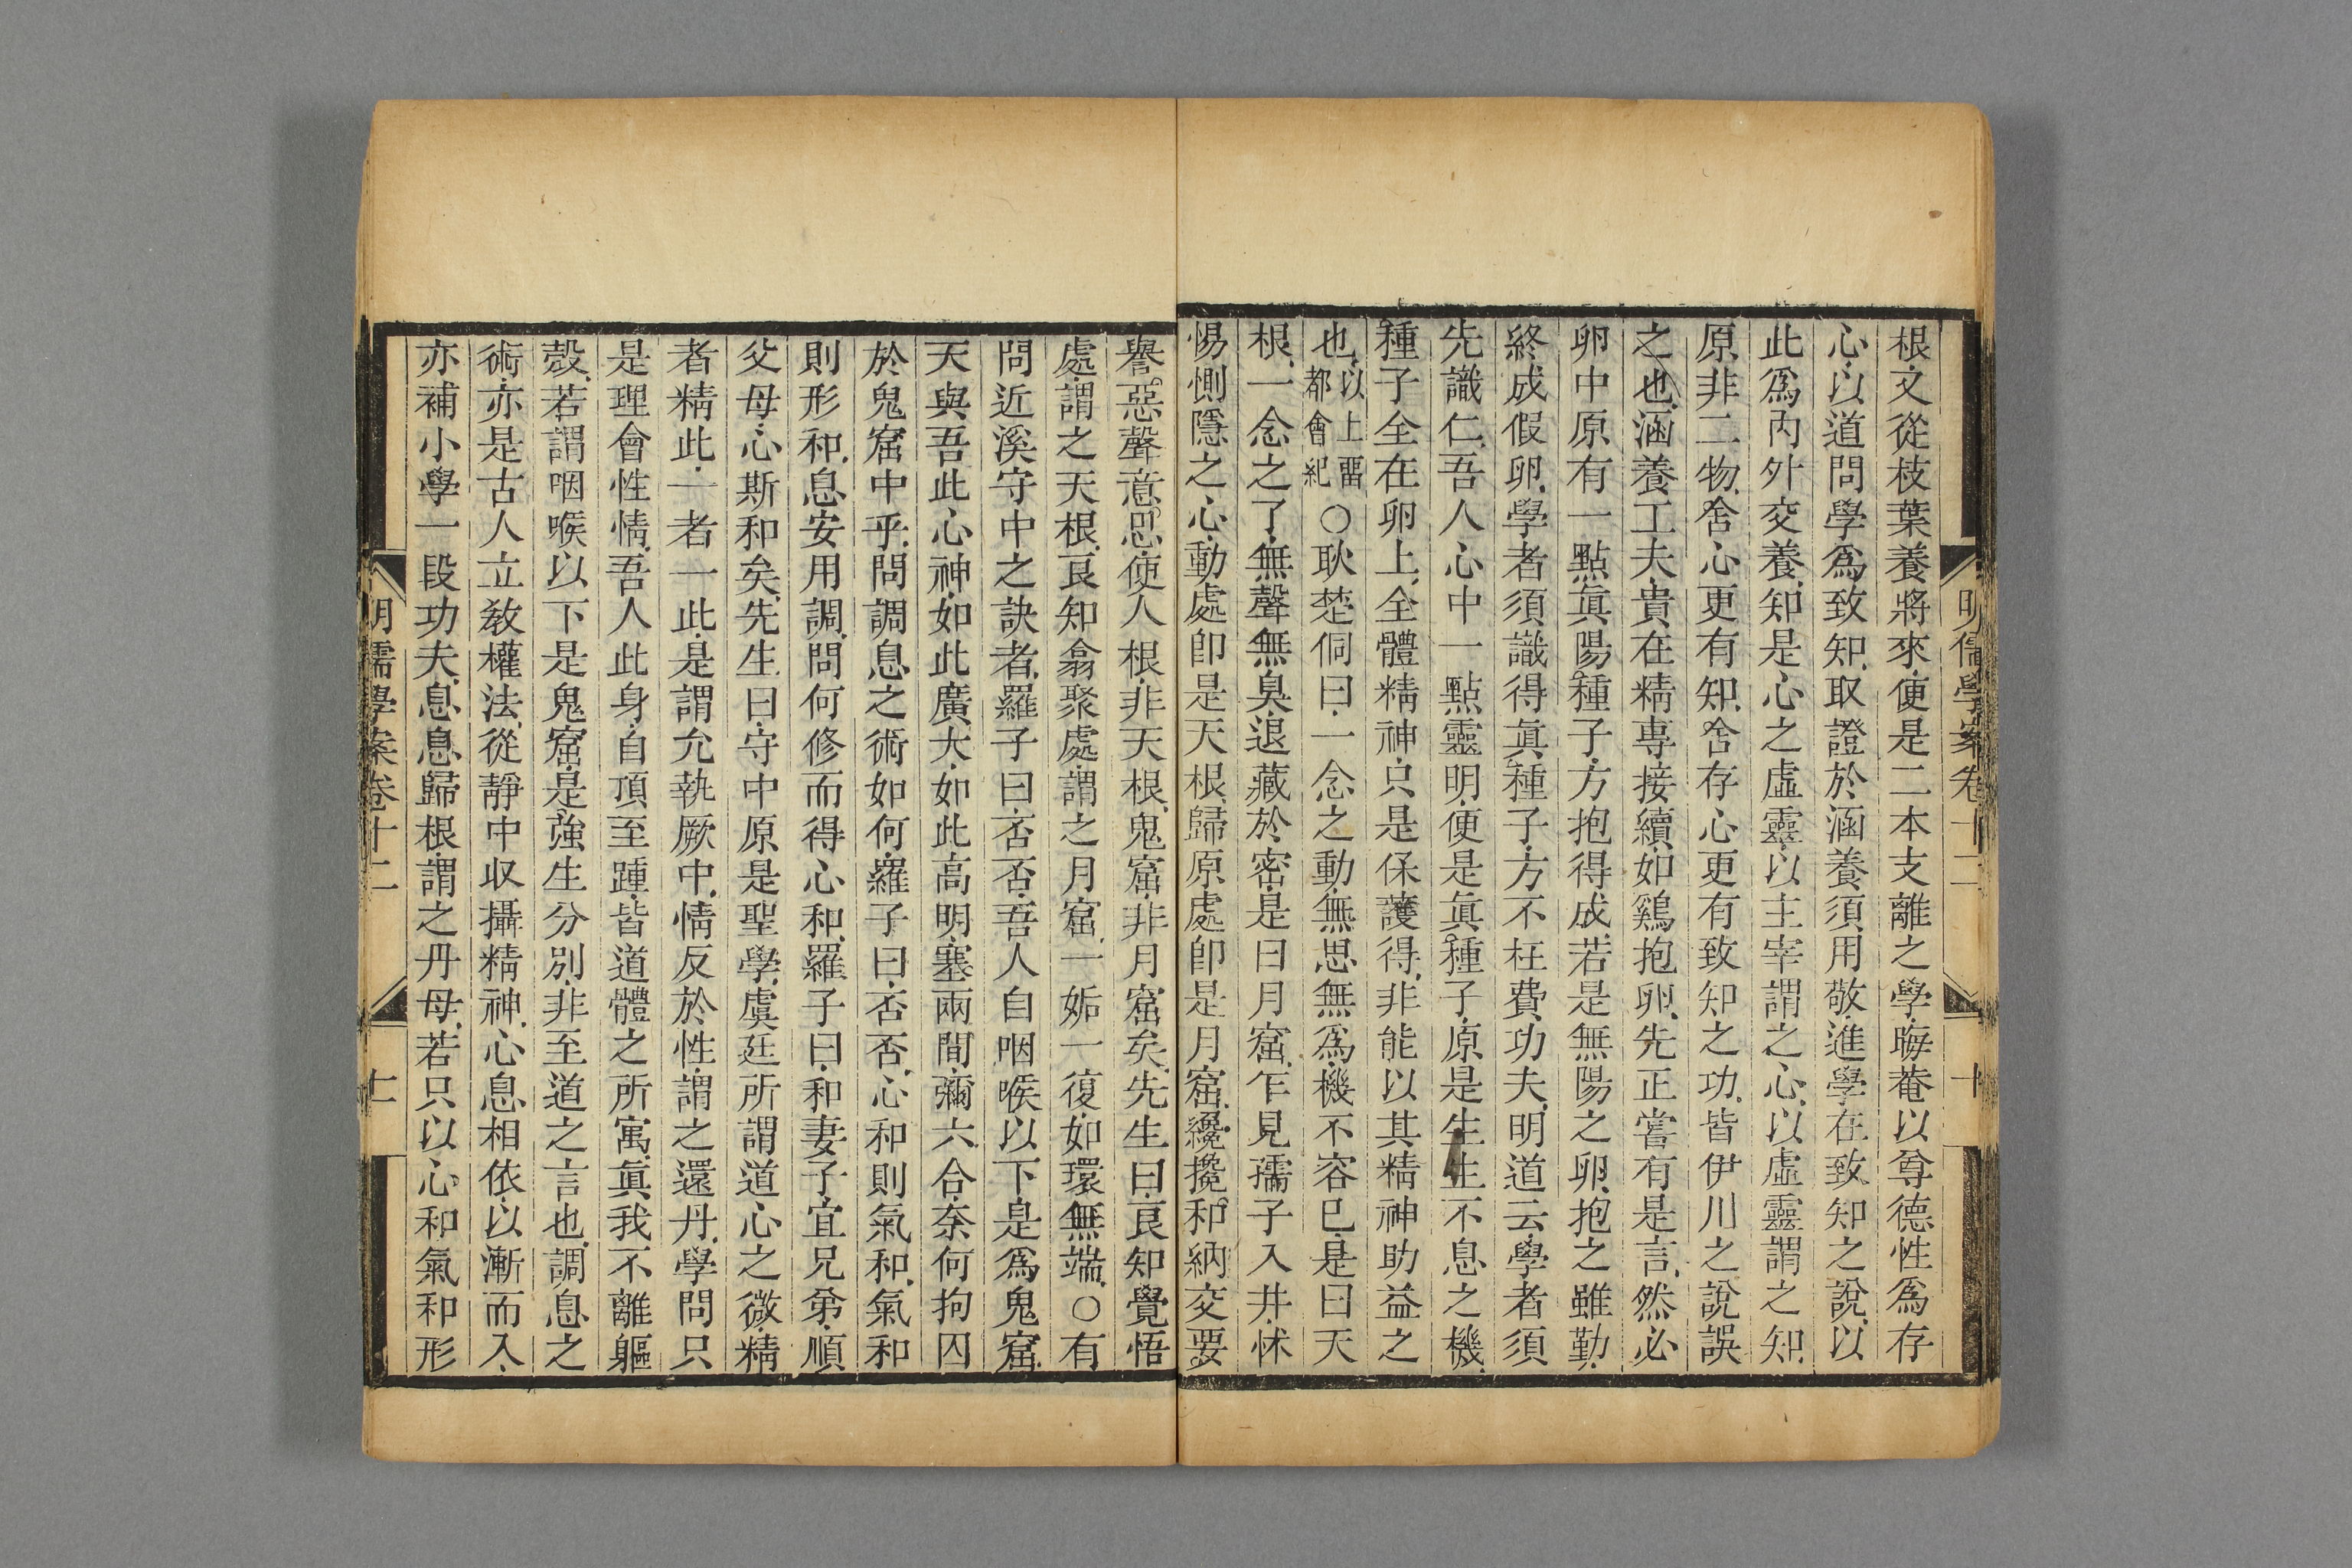 明儒學案卷十二
十
根又從枝葉養將來便是二本支離之學晦菴以尊德性爲存
心以道問學爲致知取證於涵養須用敬進學在致知之說以
此爲內外交養知是心之虛靈以主宰謂之心以虛靈謂之知
原非二物舍心更有知舍存心更有致知之功皆伊川之說誤
之也涵養工夫貴在精專接續如鷄抱卵先正嘗有是言然必
卵中原有一點眞陽種子方抱得成若是無陽之卵抱之雖勤
終成假卵學者須識得眞種子方不枉費功夫明道云學者須
先識仁吾人心中一點靈明便是眞種子原是生生不息之機
種子全在卵上全體精神只是保護得非能以其精神助益之
也以上畱都會紀○耿楚侗曰一念之動無思無爲機不容已是曰天
根一念之了無聲無臭退藏於密是曰月窟乍見孺子入井怵
惕惻隱之心動處卽是天根歸原處卽是月窟纔攙和納交要
譽惡聲意思便人根非天根鬼窟非月窟矣先生曰良知覺悟
處謂之天根良知翕聚處謂之月窟一姤一復如環無端○有
問近溪守中之訣者羅子曰否否吾人自咽喉以下是爲鬼窟
天與吾此心神如此廣大如此高明塞兩間彌六合奈何拘囚
於鬼窟中乎問調息之術如何羅子曰否否心和則氣和氣和
則形和息安用調問何修而得心和羅子曰和妻子宜兄弟順
父母心斯和矣先生曰守中原是聖學虞廷所謂道心之微精
者精此一者一此是謂允執厥中情反於性謂之還丹學問只
是理會性情吾人此身自頂至踵皆道體之所寓眞我不離軀
殼若謂咽喉以下是鬼窟是強生分別非至道之言也調息之
術亦是古人立敎權法從靜中収攝精神心息相依以漸而入
亦補小學一段功夫息息歸根謂之丹母若只以心和氣和形
明儒學案卷十二
十一